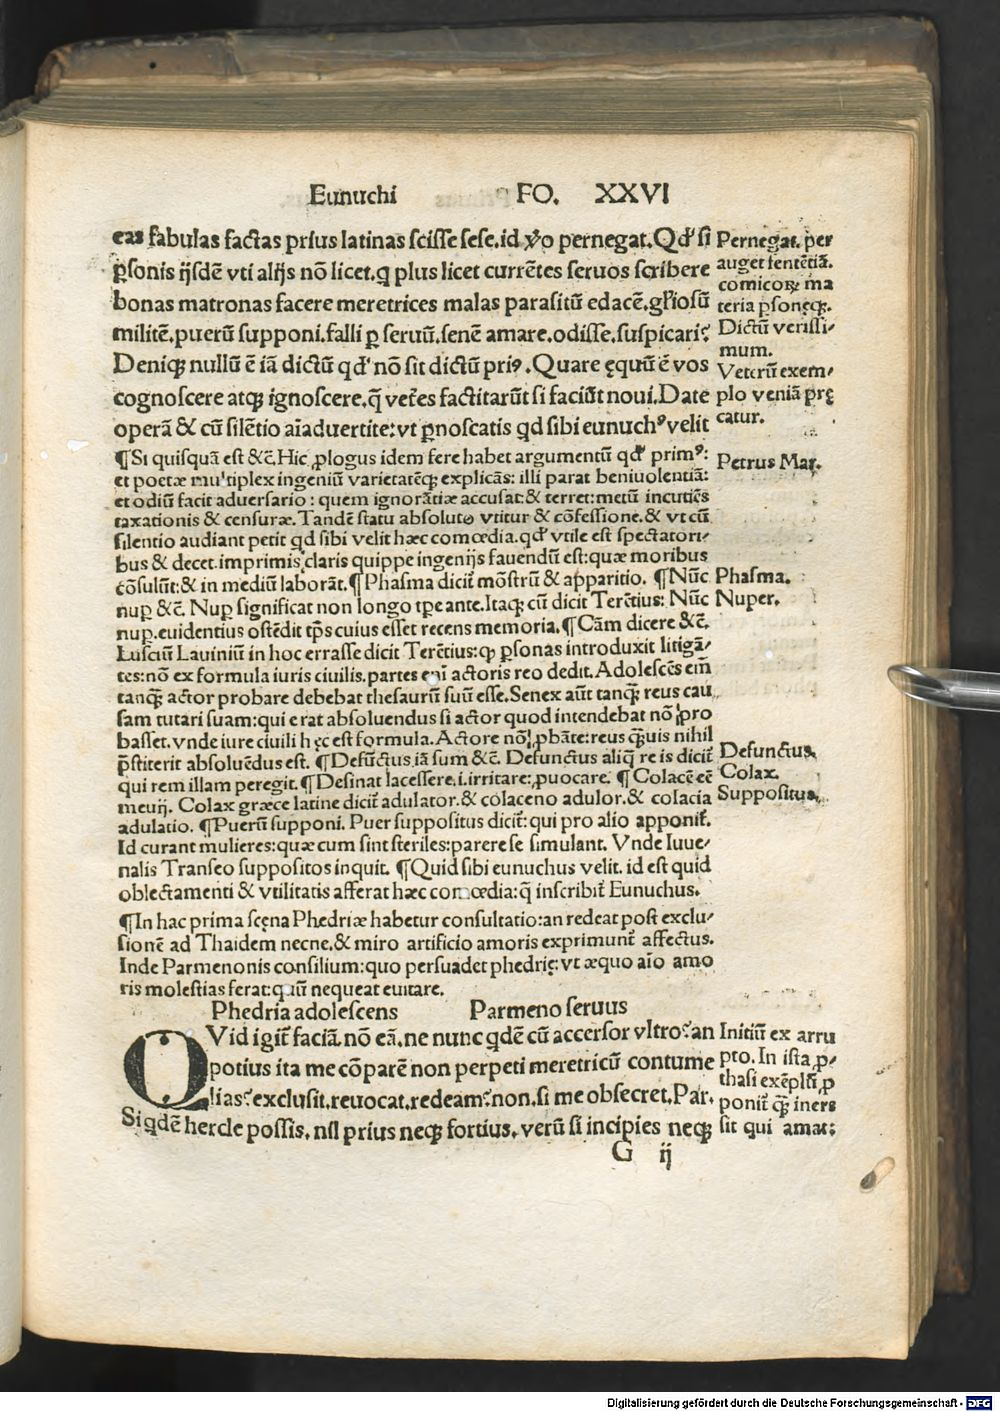 Eunuchi FO. XXVI
eas fabulas factas prius latinas scisse sese. id ꝟo pernegat. Qd' si
ꝑsonis ijsdē vti alijs nō licet. q plus licet currētes seruos scribere
bonas matronas facere meretrices malas parasitū edacē. gl'iosū
militē. puerū supponi. falli ꝑ seruū. senē amare. odisse. suspicari?
Deniqꝫ nullū ē iā dictū qd' nō sit dictū priꝰ. Quare ęquū ē vos
cognoscere atqꝫ ignoscere. q̄ vet'es factitarūt si faciūt noui. Date
operā & cū silētio aīaduertite: vt ꝑnoscatis qd sibi eunuchꝰ velit
¶ Si quisquā est &c̄. Hic ꝓlogus idem fere habet argumentū qd' primꝰ:
et poetæ multiplex ingeniū varietatēqꝫ explicās: illi parat beniuolentiā:
et odiū facit aduersario: quem ignorātiæ accusat: & terret: metū incutiēs
taxationis & censuræ. Tandē statu absoluto vtitur & cōfessione. & vt cū
silentio audiant petit qd sibi velit hæc comœdia. qd' vtile est spectatori-
bus & decet. imprimis claris quippe ingenijs fauendū est: quæ moribus
cōsulūt: & in mediū laborāt. ¶ Phasma dicit̃ mōstrū & apparitio. ¶ Nūc
nuꝑ &c̄. Nuꝑ significat non longo tꝑe ante. Itaqꝫ cū dicit Terētius: Nūc
nuꝑ. euidentius ostēdit tꝑs cuius esset recens memoria. ¶ Cām dicere &c̄.
Lusciū Lauiniū in hoc errasse dicit Terētius: ꝙ ꝑsonas introduxit litigā-
tes: nō ex formula iuris ciuilis. partes eni actoris reo dedit. Adolescēs em̄
tanqꝫ actor probare debebat thesaurū suū esse. Senex aūt tanqꝫ reus cau
sam tutari suam: qui erat absoluendus si actor quod intendebat nō pro
basset. vnde iure ciuili hęc est formula. Actore nō ꝓbāte: reus qꝫuis nihil
p̄stiterit absoluēdus est. ¶ Defūctus iā sum &c̄. Defunctus aliq̄ re is dicit̃
qui rem illam peregit. ¶ Desinat lacessere. i. irritare: ꝓuocare. ¶ Colacē eē
meuij. Colax græce latine dicit̃ adulator. & colaceno adulor. & colacia
adulatio. ¶ Puerū supponi. Puer suppositus dicit̃: qui pro alio apponit̃.
Id curant mulieres: quæ cum sint steriles: parere se simulant. Vnde Iuue-
nalis Transeo suppositos inquit. ¶ Quid sibi eunuchus velit. id est quid
oblectamenti & vtilitatis afferat hæc comœdia: q̄ inscribit̃ Eunuchus.
¶ In hac prima scęna Phedriæ habetur consultatio: an redeat post exclu-
sionē ad Thaidem necne. & miro artificio amoris exprimunt̃ affectus.
Inde Parmenonis consilium: quo persuadet phedrię: vt æquo aīo amo
ris molestias ferat: quū nequeat euitare.
Phedria adolescens Parmeno seruus
QVid igit̃ faciā. nō eā. ne nunc qdē cū accersor vltro? an
potius ita me cōparē non perpeti meretricū contume
lias? exclusit. reuocat. redeam? non. si me obsecret. Par.
Siqdē hercle possis. nil prius neqꝫ fortius. verū si incipies neqꝫ
G ij
Pernegat. per
auget sentētiā.
comicoꝝ ma
teria ꝑsonęqꝫ.
Dictū verissi-
mum.
Veterū exem-
plo veniā prę
catur.
Petrus Mar.
Phasma.
Nuper.
Defunctus.
Colax.
Suppositus.
Initiū ex arru
pto. In ista ꝓ-
thasi exēplū ꝓ
ponit̃ qꝫ iners
sit qui amat:
Digitalisierung gefördert durch die Deutsche Forschungsgemeinschaft - DFG